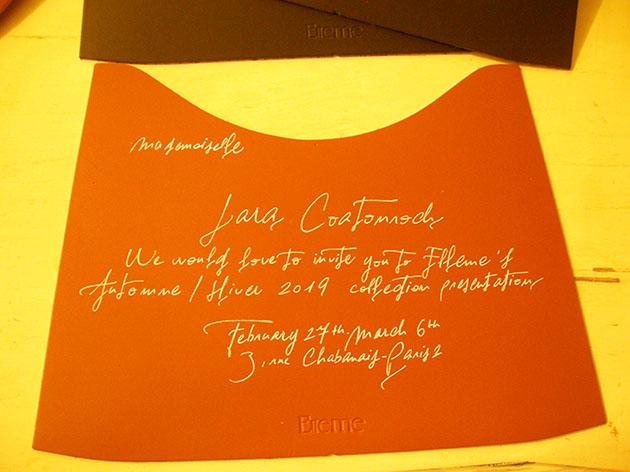 Elleme
Mademoiselle
Lara
We would love to invite you to Elleme's
Automne / Hiver 2019 collection presentation
February 27th - March 6th
3, rue Chabanais - Paris 2
Elleme